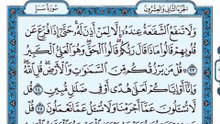 الجزء الثاني والعشرون سورة سبأ
وَلَا تَنفَعُ ٱلشَّفَٰعَةُ عِندَهُۥٓ إِلَّا لِمَنْ أَذِنَ لَهُۥ حَتَّىٰٓ إِذَا فُزِّعَ عَن
قُلُوبِهِمْ قَالُوا۟ مَاذَا قَالَ رَبُّكُمْ قَالُوا۟ ٱلْحَقَّ وَهُوَ ٱلْعَلِىُّ ٱلْكَبِيرُ
٢٣ قُلْ مَن يَرْزُقُكُم مِّنَ ٱلسَّمَٰوَٰتِ وَٱلْأَرْضِ قُلِ ٱللَّهُ
وَإِنَّآ أَوْ إِيَّاكُمْ لَعَلَىٰ هُدًى أَوْ فِى ضَلَٰلٍ مُّبِينٍ ٢٤ قُل
لَّا تُسْـَٔلُونَ عَمَّآ أَجْرَمْنَا وَلَا نُسْـَٔلُ عَمَّا تَعْمَلُونَ ٢٥